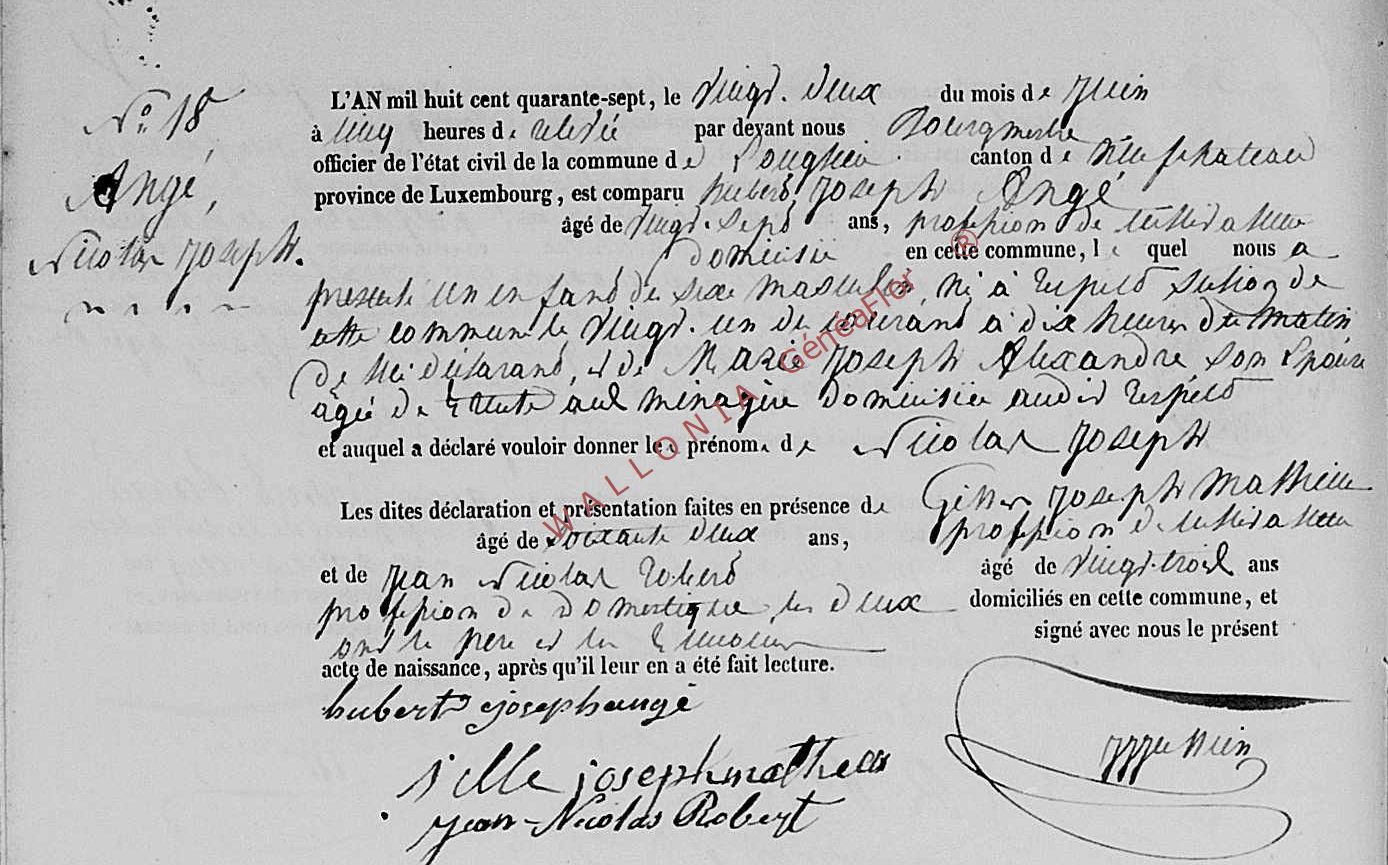 N.º 18
Angé,
Nicolas Joseph.
L'AN mil huit cent quarante-sept, le vingt-deux du mois de Juin
à cinq heures de relevée par devant nous Bourgmestre
officier de l'état civil de la commune de canton de Neufchateau
province de Luxembourg, est comparu hubert Joseph Angé
âgé de vingt-sept ans, profession de cultivateur
domicilié en cette commune, le quel nous a
presenté un enfant de sexe masculin, né à Respelt section de
cette commune le vingt-un du courant à dix heures du matin
de lui déclarant, et de Marie Joseph Alexandre son Epouse
agée de trente ans ménagère domiciliée audit Respelt
et auquel a déclaré vouloir donner les prénoms de Nicolas Joseph
Les dites déclaration et présentation faites en présence de Joseph Mathieu
âgé de soixante deux ans, profession de cultivateur
et de Jean Nicolas Robert âgé de vingt-trois ans
profession de domestique, les deux domiciliés en cette commune, et
ont le père et les témoins signé avec nous le présent
acte de naissance, après qu'il leur en a été fait lecture.
hubert joseph angé
joseph mathieu
Jean-Nicolas Robert
WALLONIA GénéaFlor ®